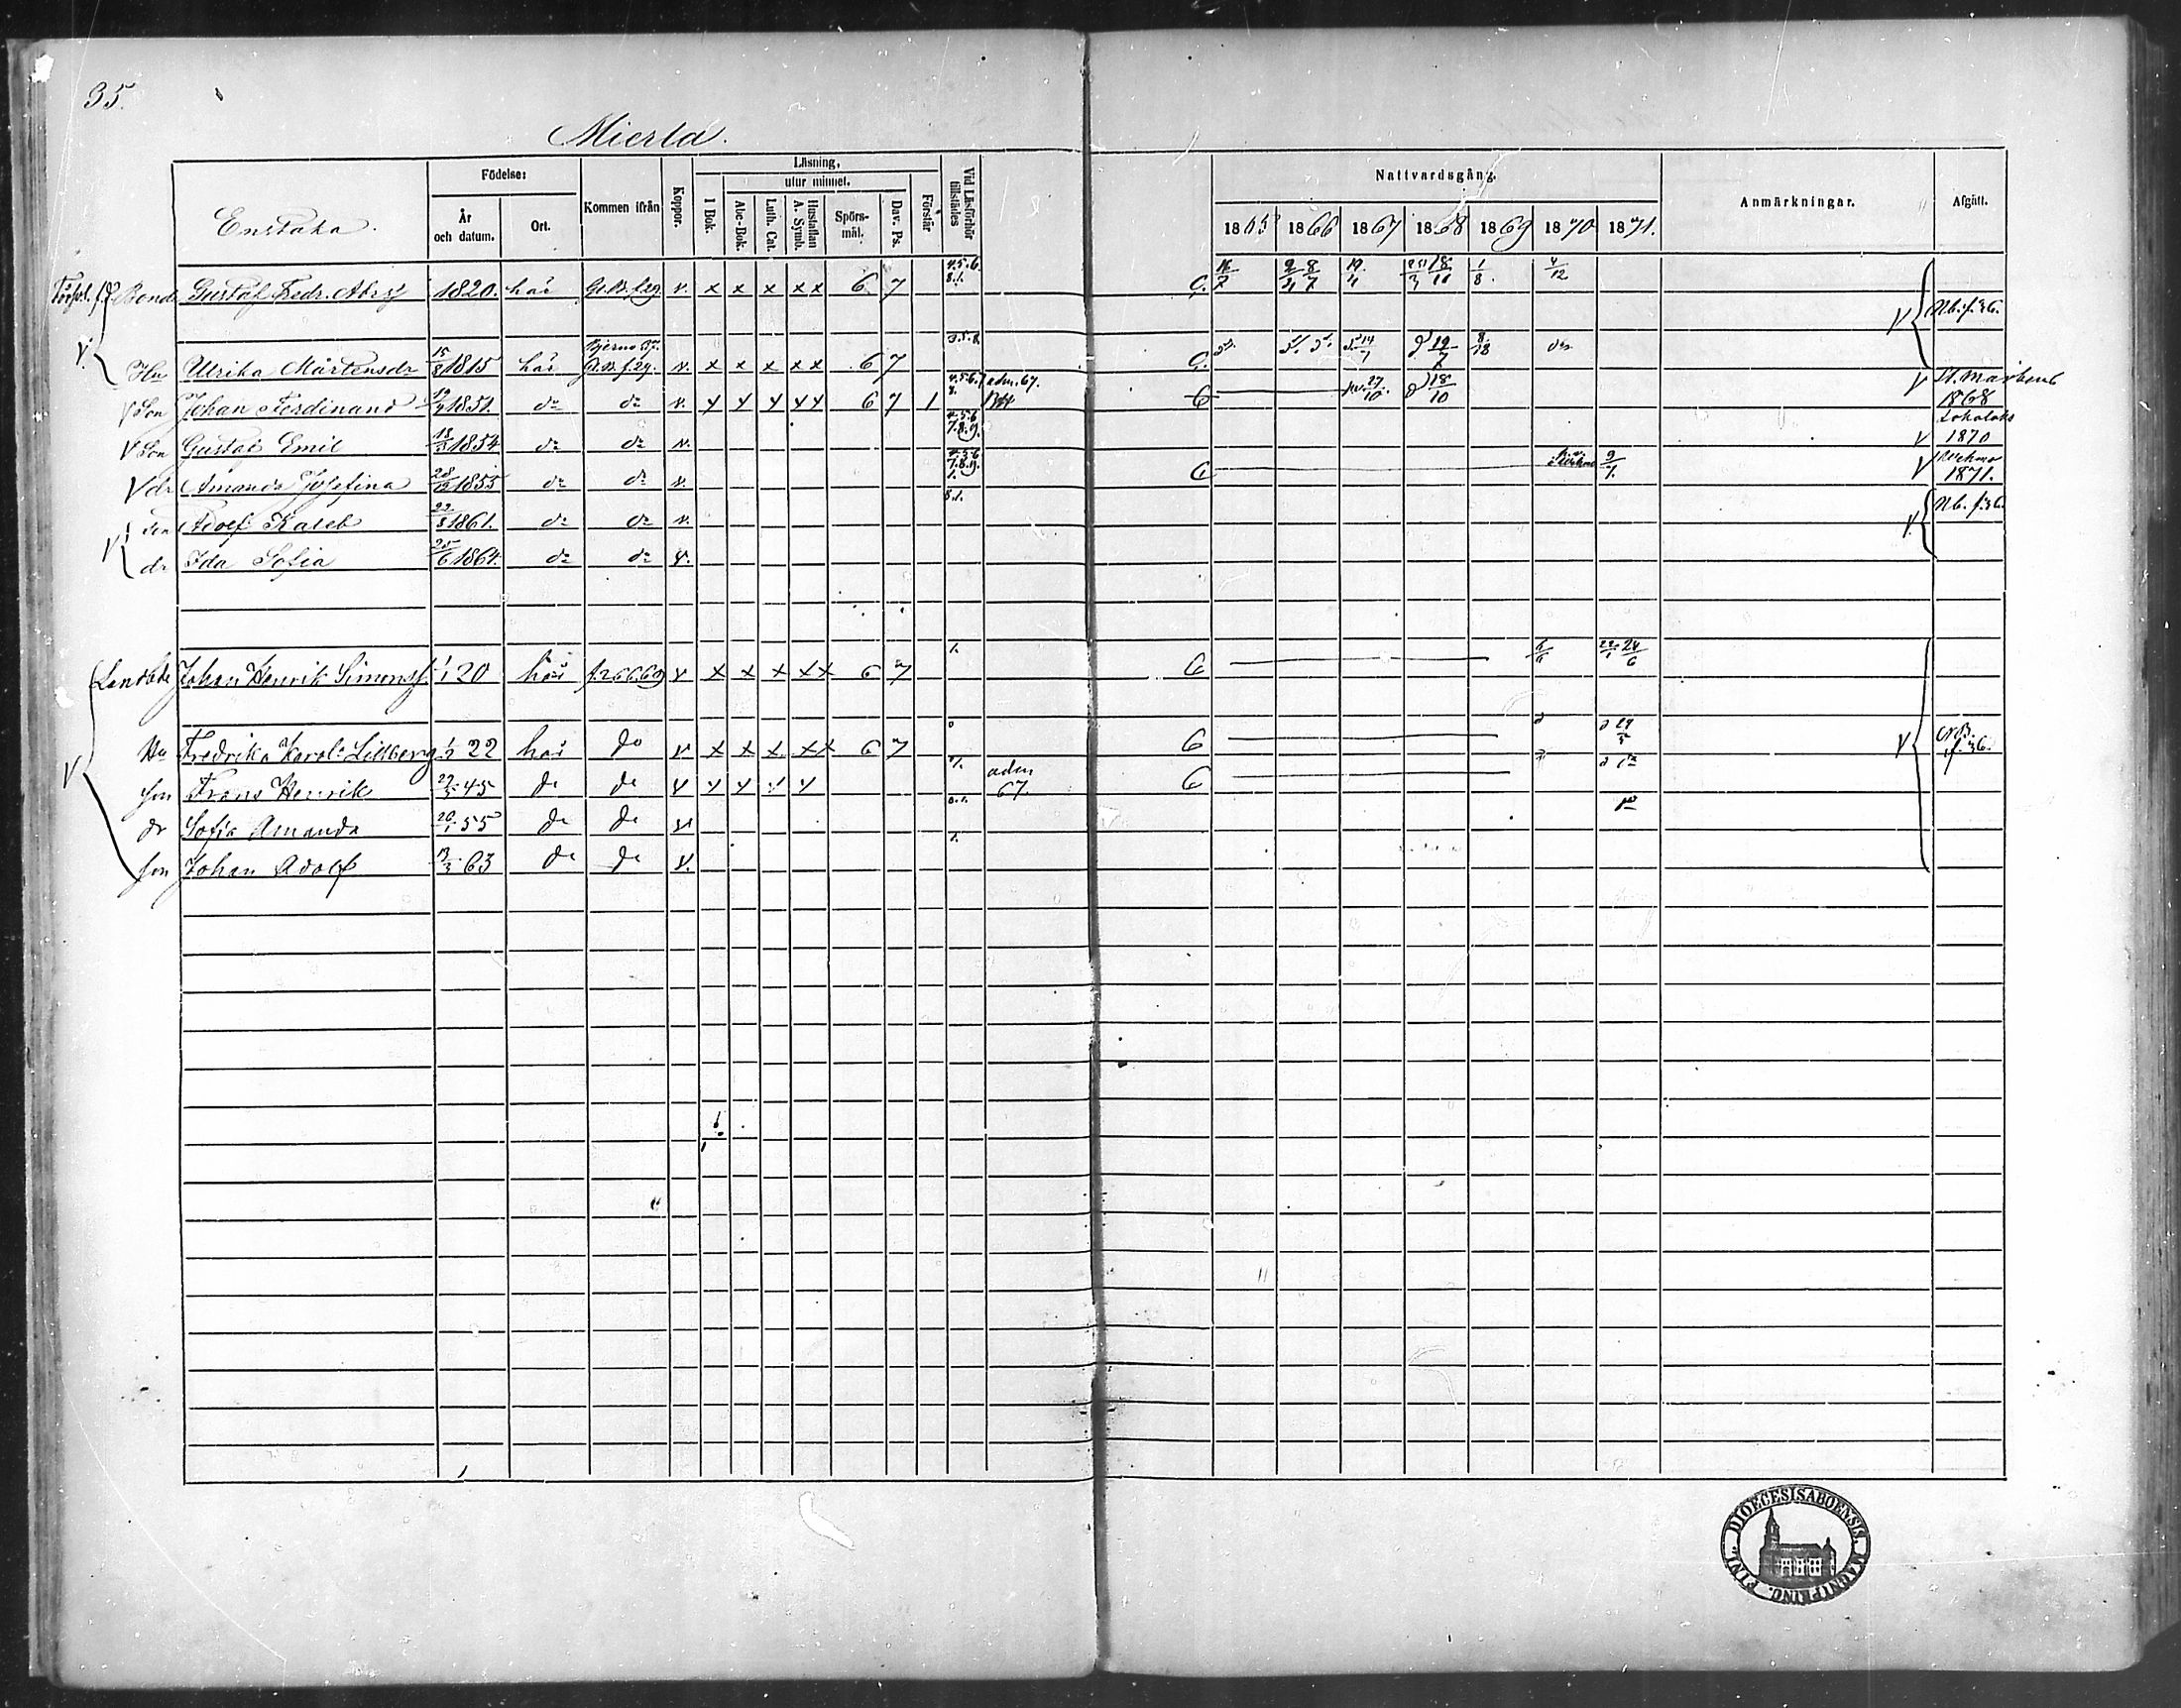 35.
Mierla.
Enstaka.
Födelse:
År och datum.
Ort.
Kommen ifrån
Koppor.
Läsning,
utur minnet.
I Bok.
Abc-Bok.
Luth. Cat.
Hustaflan A. Symb.
Spörs-mål.
Dav. Ps.
Förstår
Vid Läsförhör tillstädes
Nattvardsgång.
1865 1866 1867 1868 1869 1870 1871.
Anmärkningar.
Afgått.
Bonde Gustaf Fredr. Abrsf 1820. här v. x x x x x 6. 7 G. 1/8 4/12 Nb. f. 36.
Hu Ulrika Mårtensdr 15/8 1815 här v. x x x x x 6 7 G. 19/7
Son Johan Ferdinand 1851. do do v. 6 7 1 adm. 67. 27/10 18/10 St. Mårtens 1868
Son Gustaf Emil 18/3 1854 do do v. Lokalaks 1870
dr Amanda Josefina 1855 do do v. 9/7 Vehmo 1871.
Son Adolf Kaleb 22/8 1861. do do v. Nb. f. 36
dr Ida Sofia 25/6 1864. do do v.
Landbde Johan Henrik Simonsf. 1/1 20 här v x x x x x 6 7 G 24/6
Hu Fredrika Karola Lillberg 22 här do v x x x x x 6 7 G f. 36.
son Frans Henrik 45 do do v adm 67. G
dr Sofia Amanda 20/1 55 do do v
son Johan Adolf 63 do do v.
DIOECESIS ABOENSIS. MAGNI PRINC. FINL.